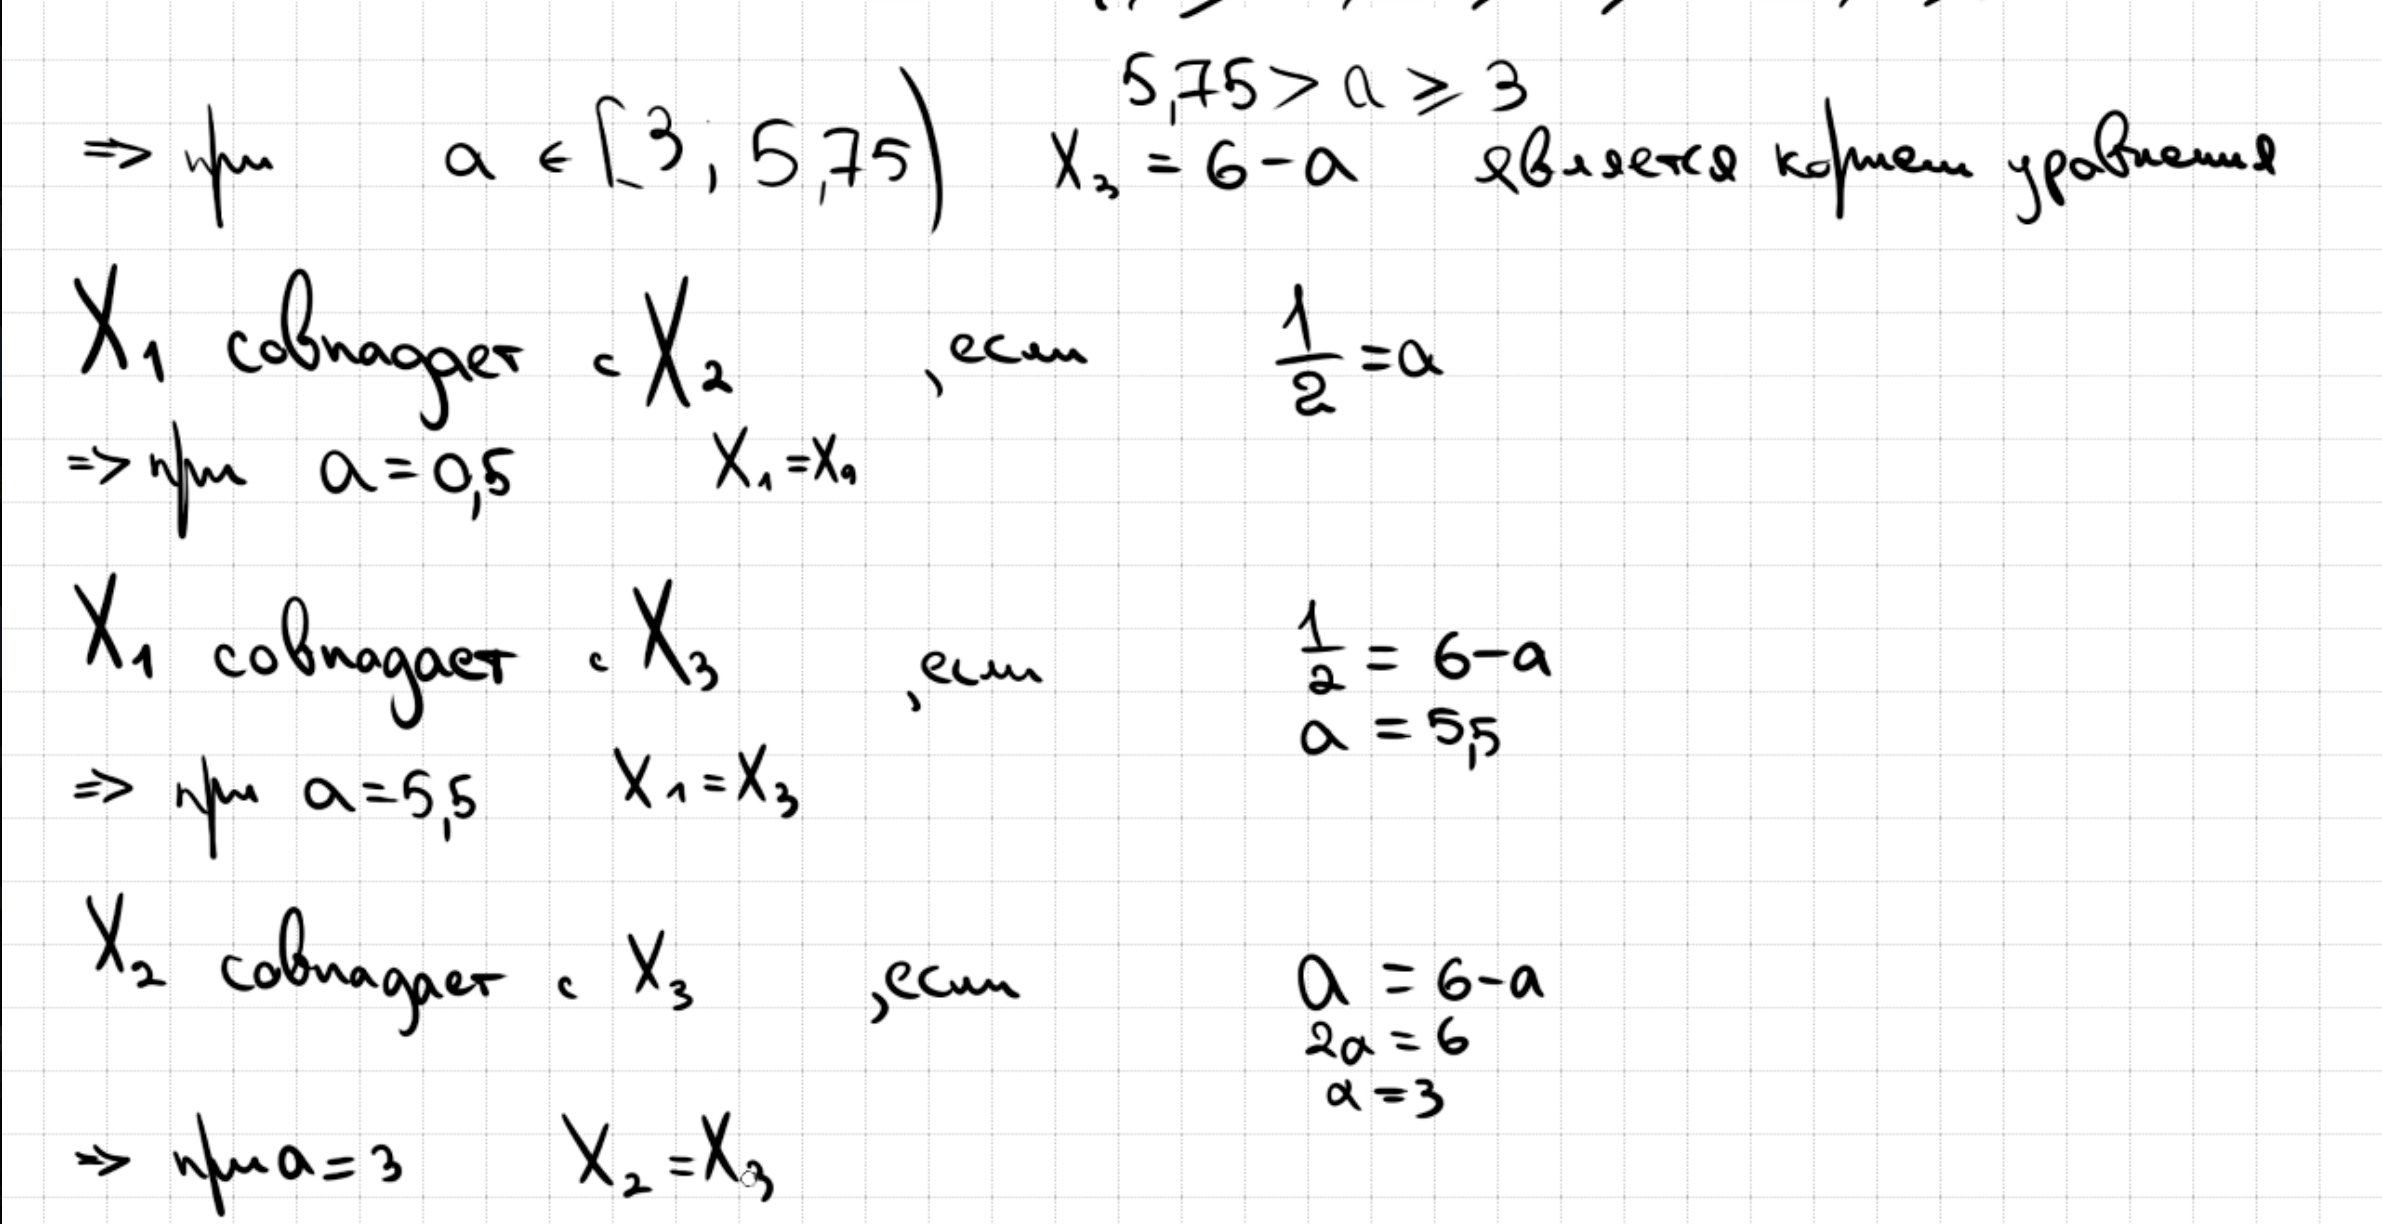 5,75 > a ⩾ 3
=> при a ∈ [3; 5,75) X₃ = 6 - a является корнем уравнения
X₁ совпадает с X₂, если 1/2 = a
=> при a = 0,5 X₁ = X₂
X₁ совпадает с X₃, если 1/2 = 6 - a
a = 5,5
=> при a = 5,5 X₁ = X₃
X₂ совпадает с X₃, если a = 6 - a
2a = 6
a = 3
=> при a = 3 X₂ = X₃